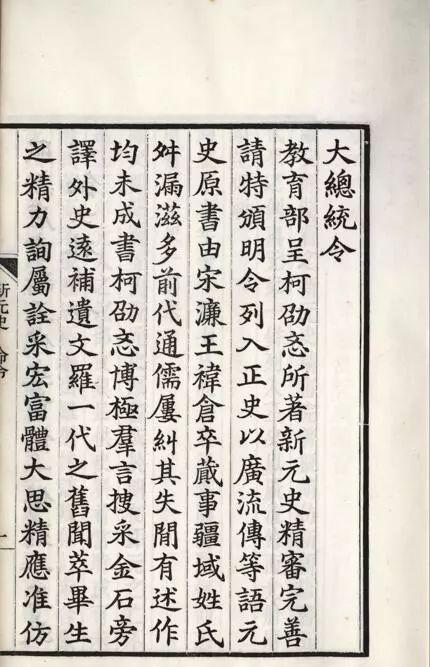 大總統令
教育部呈柯劭忞所著新元史精審完善
請特頒明令列入正史以廣流傳等語元
史原書由宋濂王禕倉卒蕆事疆域姓氏
舛漏滋多前代通儒屢糾其失閒有述作
均未成書柯劭忞博極羣言搜采金石旁
譯外史遠補遺文羅一代之舊聞萃畢生
之精力詢屬詮采宏富體大思精應准仿
新元史 命令
一